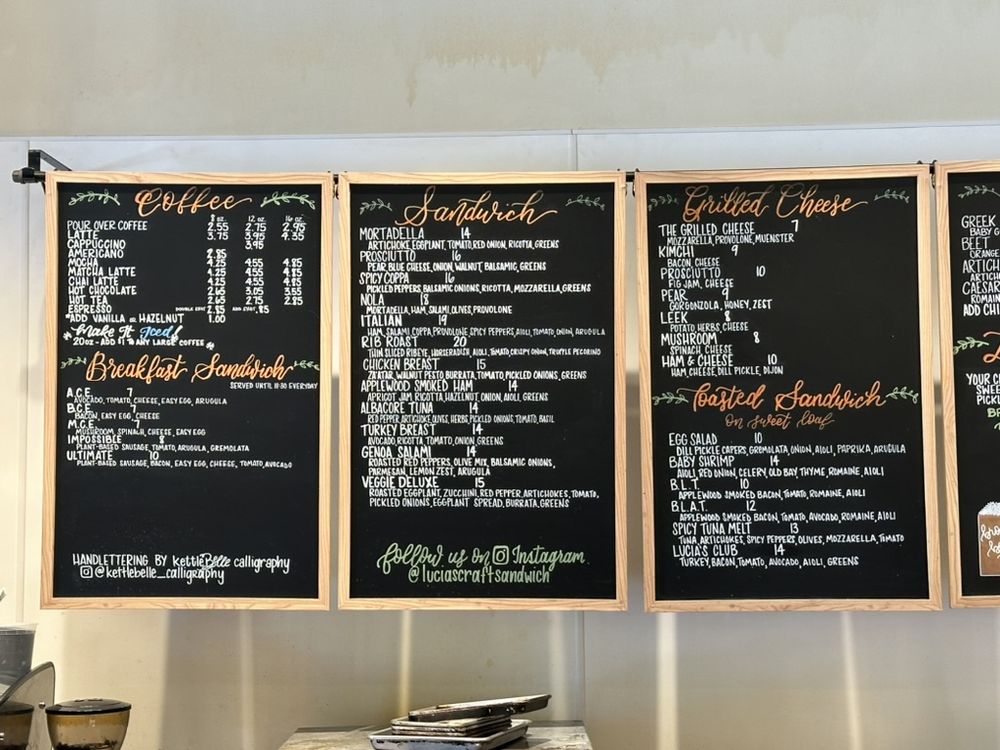 Coffee
8 oz. 12 oz. 16 oz.
POUR OVER COFFEE 2.55 2.75 2.95
LATTE 3.75 3.95 4.35
CAPPUCCINO 3.95
AMERICANO 2.85
MOCHA 4.25 4.55 4.85
MATCHA LATTE 4.25 4.55 4.85
CHAI LATTE 4.25 4.55 4.85
HOT CHOCOLATE 2.65 3.25 3.85
HOT TEA 2.65 2.75 2.85
ESPRESSO DOUBLE SHOT 2.85 ADD SHOT .85
*ADD VANILLA OR HAZELNUT 1.00
*Make It Iced!
20oz - ADD $1 TO ANY LARGE COFFEE*
Breakfast Sandwich
SERVED UNTIL 11:30 EVERYDAY
A.C.E. 7
AVOCADO, TOMATO, CHEESE, EASY EGG, ARUGULA
B.C.E. 7
BACON, EASY EGG, CHEESE
M.C.E. 7
MUSHROOM, SPINACH, CHEESE, EASY EGG
IMPOSSIBLE 8
PLANT-BASED SAUSAGE, TOMATO, ARUGULA, GREMOLATA
ULTIMATE 10
PLANT-BASED SAUSAGE, BACON, EASY EGG, CHEESE, TOMATO, AVOCADO
HANDLETTERING BY kettleBelle calligraphy
@kettlebelle_calligraphy
Sandwich
MORTADELLA 14
ARTICHOKE, EGGPLANT, TOMATO, RED ONION, RICOTTA, GREENS
PROSCIUTTO 16
PEAR, BLUE CHEESE, ONION, WALNUT, BALSAMIC, GREENS
SPICY COPPA 16
PICKLED PEPPERS, BALSAMIC ONIONS, RICOTTA, MOZZARELLA, GREENS
NOLA 18
MORTADELLA, HAM, SALAMI, OLIVES, PROVOLONE
ITALIAN 19
HAM, SALAMI, COPPA, PROVOLONE, SPICY PEPPERS, AIOLI, TOMATO, ONION, ARUGULA
RIB ROAST 20
THIN SLICED RIBEYE, HORSERADISH, AIOLI, TOMATO, CRISPY ONION, TRUFFLE PECORINO
CHICKEN BREAST 15
ZA'ATAR, WALNUT PESTO, BURRATA, TOMATO, PICKLED ONIONS, GREENS
APPLEWOOD SMOKED HAM 14
APRICOT JAM, RICOTTA, HAZELNUT, ONION, AIOLI, GREENS
ALBACORE TUNA 14
RED PEPPER, ARTICHOKE, OLIVES, HERBS, PICKLED ONIONS, TOMATO, BASIL
TURKEY BREAST 14
AVOCADO, RICOTTA, TOMATO, ONION, GREENS
GENOA SALAMI 14
ROASTED RED PEPPERS, OLIVE MIX, BALSAMIC ONIONS,
PARMESAN, LEMON ZEST, ARUGULA
VEGGIE DELUXE 15
ROASTED EGGPLANT, ZUCCHINI, RED PEPPER, ARTICHOKES, TOMATO,
PICKLED ONIONS, EGGPLANT SPREAD, BURRATA, GREENS
follow us on Instagram
@luciascraftsandwich
Grilled Cheese
THE GRILLED CHEESE 7
MOZZARELLA, PROVOLONE, MUENSTER
KIMCHI 9
BACON, CHEESE
PROSCIUTTO 10
FIG JAM, CHEESE
PEAR 9
GORGONZOLA, HONEY, ZEST
LEEK 8
POTATO, HERBS, CHEESE
MUSHROOM 8
SPINACH, CHEESE
HAM & CHEESE 10
HAM, CHEESE, DILL PICKLE, DIJON
Toasted Sandwich
on sweet loaf
EGG SALAD 10
DILL PICKLE, CAPERS, GREMOLATA, ONION, AIOLI, PAPRIKA, ARUGULA
BABY SHRIMP 14
AIOLI, RED ONION, CELERY, OLD BAY, THYME, ROMAINE, AIOLI
B.L.T. 10
APPLEWOOD SMOKED BACON, TOMATO, ROMAINE, AIOLI
B.L.A.T. 12
APPLEWOOD SMOKED BACON, TOMATO, AVOCADO, ROMAINE, AIOLI
SPICY TUNA MELT 13
TUNA, ARTICHOKES, SPICY PEPPERS, OLIVES, MOZZARELLA, TOMATO
LUCIA'S CLUB 14
TURKEY, BACON, TOMATO, AVOCADO, AIOLI, GREENS
GREEK
BABY G
BEET
ORANGE
ARTICH
ARTICH
CAESAR
ROMA
ADD CHI
YOUR C
SWEE
PICKL